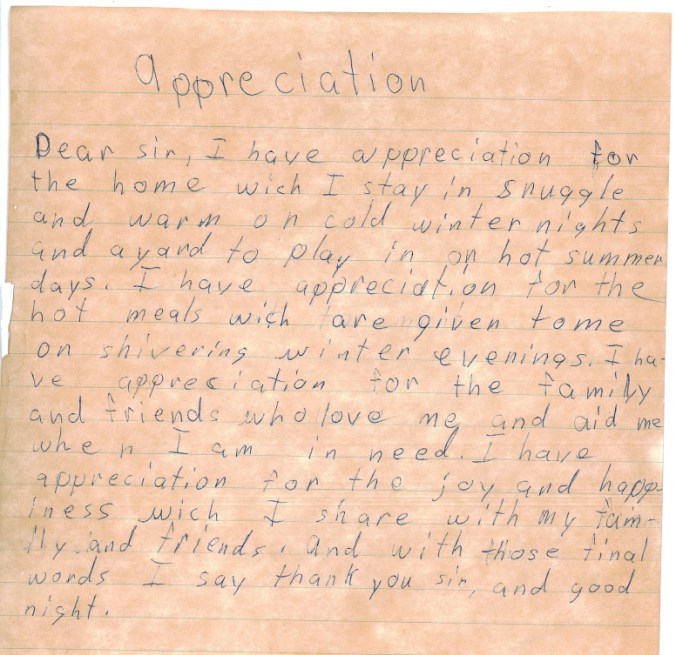 Appreciation
Dear sir, I have appreciation for
the home wich I stay in snuggle
and warm on cold winter nights
and a yard to play in on hot summer
days. I have appreciation for the
hot meals wich are given to me
on shivering winter evenings. I ha-
ve appreciation for the family
and friends who love me and aid me
when I am in need. I have
appreciation for the joy and happ-
iness wich I share with my fam-
ily and friends. And with those final
words I say thank you sir, and good
night.